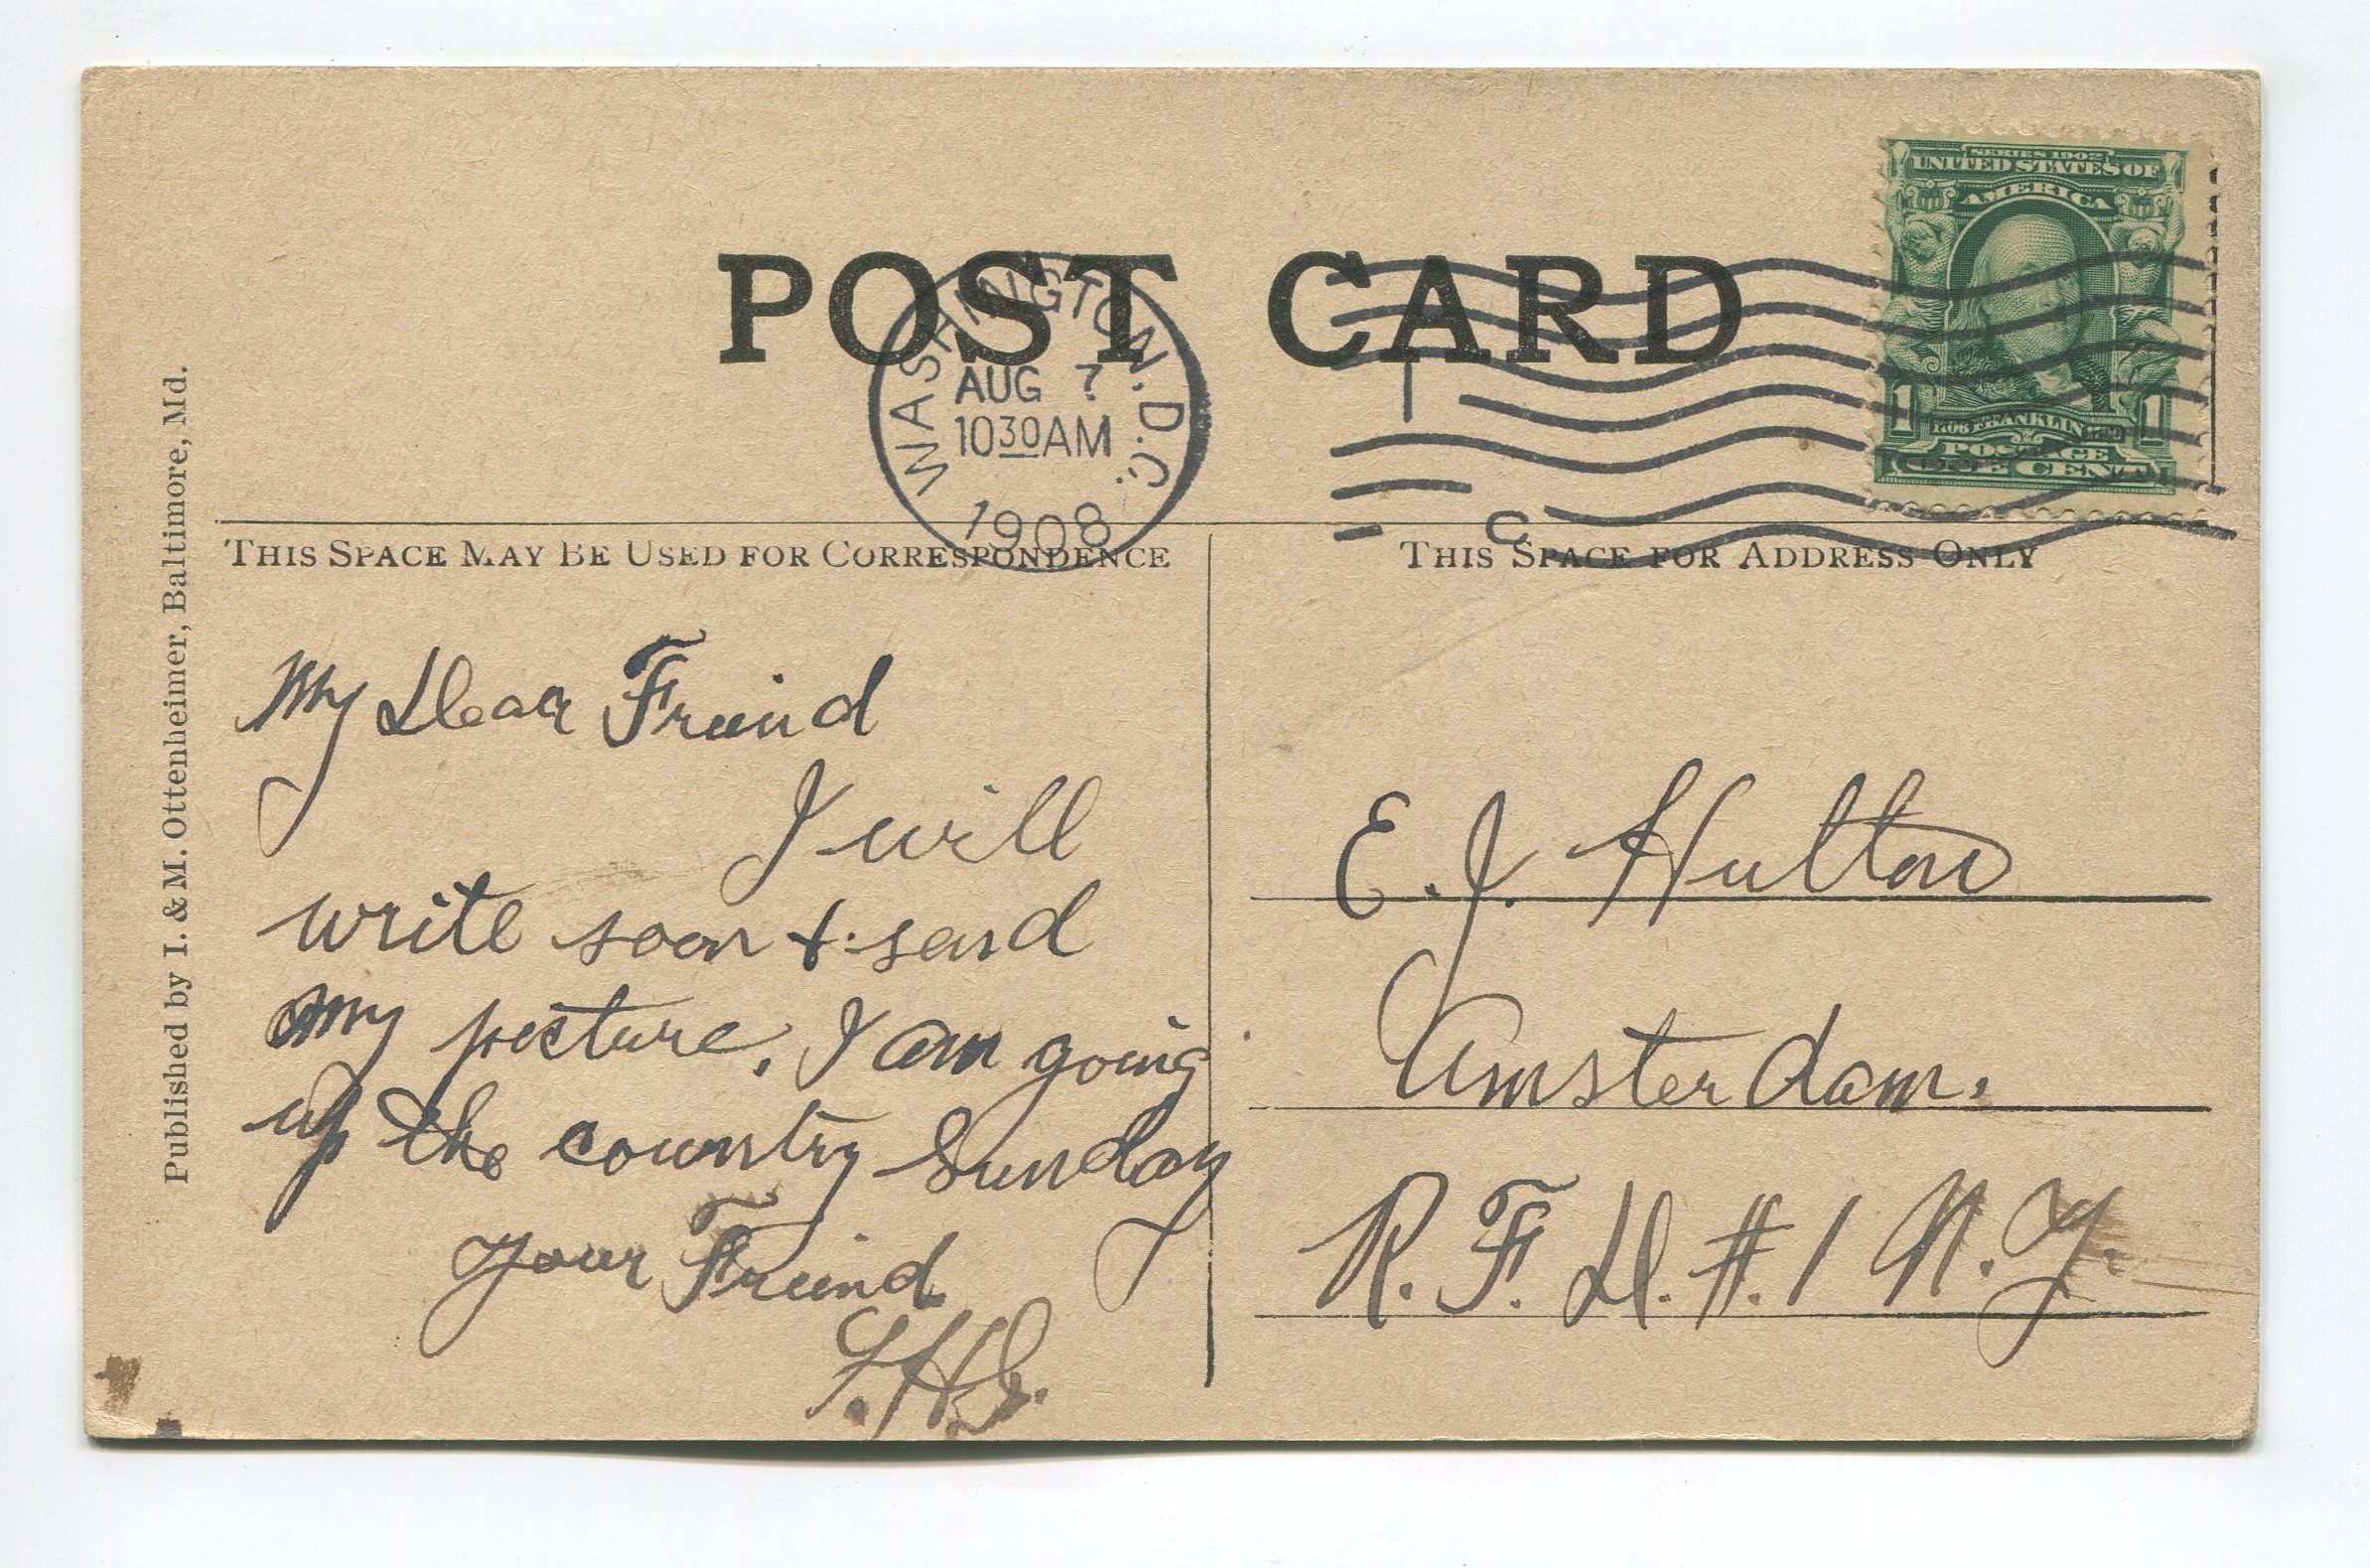 POST CARD
WASHINGTON. D.C.
AUG 7
10 30 AM
1908
1
C
SERIES 1902
UNITED STATES OF
AMERICA
1 FRANKLIN 1
POSTAGE
ONE CENT
Published by I. & M. Ottenheimer, Baltimore, Md.
THIS SPACE MAY BE USED FOR CORRESPONDENCE
My Dear Freind
I will
write soon & send
my picture. I am going
up the country Sunday
Your Freind
THIS SPACE FOR ADDRESS ONLY
E. J. Hulton
Amsterdam.
R. F. D. #. 1 N. Y.